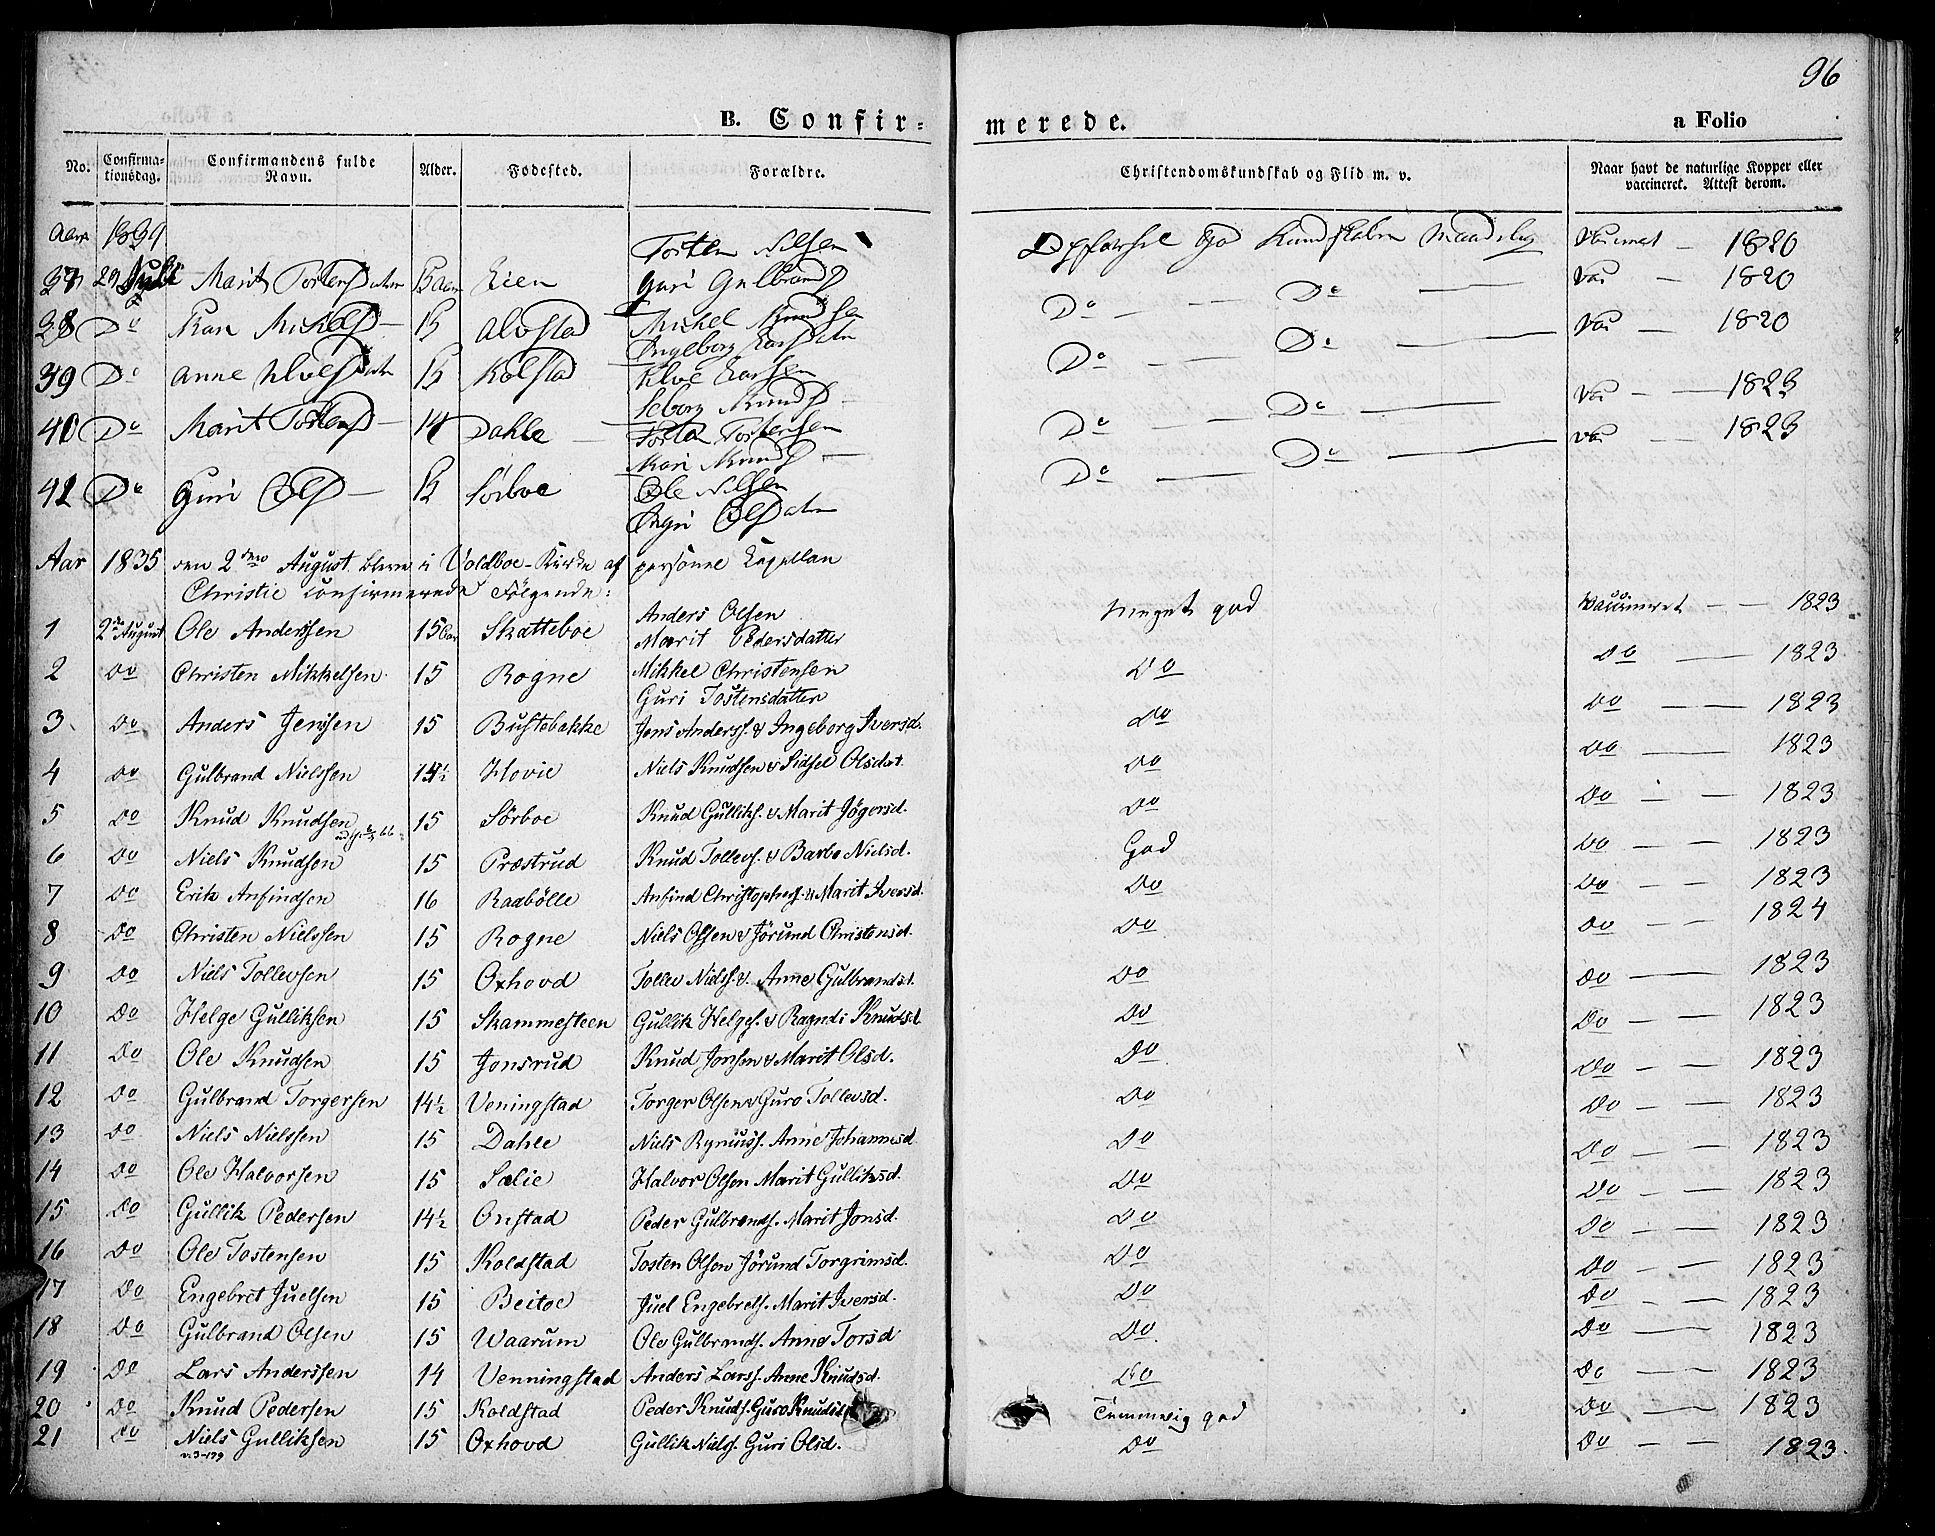 96
B. Confir= merede. a Folio
No. Confirma-tionsdag. Confirmandens fulde Navn. Alder. Fodested. Forældre. Christendomskundskab og Flid m. v. Naar havt de naturlige Kopper eller vaccineret. Attest derom.
Aar 1834
37 29 Marit Eien Tosten Nilsen Guri Gulbrandsd 1820
38 Do 15 Alvstad Michel Knudsen Ingeborg Larsdatn Do Do Vac 1820
39 Do Anne 15 Kolstad Larsen Knudsd Do Do Vac 1820
40 Do Marit Tostensd 14 Dahle Tosten Tostensen Mari Knudsd Do Do Vac 1823
41 Do Guri Olsd 15 Sørboe Ole Nilsen Olsdatn Do Do Vac 1823
Aar 1835 den 2den August bleve i Voldboe-Kirke af personne Kapellan
Christie confirmerede Følgende:
1 2den August Ole Anderssen 15 Skatteboe Anders Olsen Marit Pedersdatter Meget god Vaccineret 1823
2 Do Christen Mikkelsen 15 Rogne Mikkel Christensen Guri Tostensdatter Do Do 1823
3 Do Anders Jenssen 15 Bustebakke Jens Anderss. & Ingeborg Iversd. Do Do 1823
4 Do Gulbrand Nielssen Hovie Niels Knudsen & Sidsel Olsdat Do Do 1823
5 Do Knud Knudsen 15 Sørboe Knud Gulliks. & Marit Jøgersd. Do Do 1823
6 Do Niels Knudsen 15 Præstrud Knud Tollevs. & Barbo Nielsd. God Do 1823
7 Do Erik Anfindsen 16 Raabølle Anfind Christophers. & Marit Iversd. Do Do 1823
8 Do Christen Nielssen 15 Rogne Niels Olsen & Jørund Christensd. Do Do 1824
9 Do Niels Tollevsen 15 Oxhovd Tollev Nielss. & Anne Gulbrandsd. Do Do 1823
10 Do Helge Gulliksen 15 Skammesteen Gullik Helges. & Ragndi Knudsd Do Do 1823
11 Do Ole Knudsen 15 Jonsrud Knud Jonsen & Marit Olsd. Do Do 1823
12 Do Gulbrand Torgersen 14½ Veningstad Torger Olsen & Guro Tollevsd. Do Do 1823
13 Do Niels Nielssen 15 Dahle Niels Anne Johannesd Do Do 1823
14 Do Ole Halvorsen 15 Sælie Halvor Olsen Marit Gulliksd. Do Do 1823
15 Do Gullik Pedersen 14½ Onstad Peder Gulbrands. Marit Jonsd. Do Do 1823
16 Do Ole Tostensen 15 Koldstad Tosten Olsen Jørund Torgrimsd. Do Do 1823
17 Do Engebret Juelsen 15 Beitoe Juel Engebrets. Marit Iversd. Do Do 1823
18 Do Gulbrand Olsen 15 Waarum Ole Gulbrands. Anne Torsd Do Do 1823
19 Do Lars Anderssen 14 Venningstad Anders Larss. Anne Knudsd. Do Do 1823
20 Do Knud Pedersen 15 Koldstad Peder Knuds. Guro Knudsd Temmelig god Do 1823
21 Do Niels Gulliksen 15 Oxhovd Gullik Nielss. Guri Olsd. Do Do 1823.